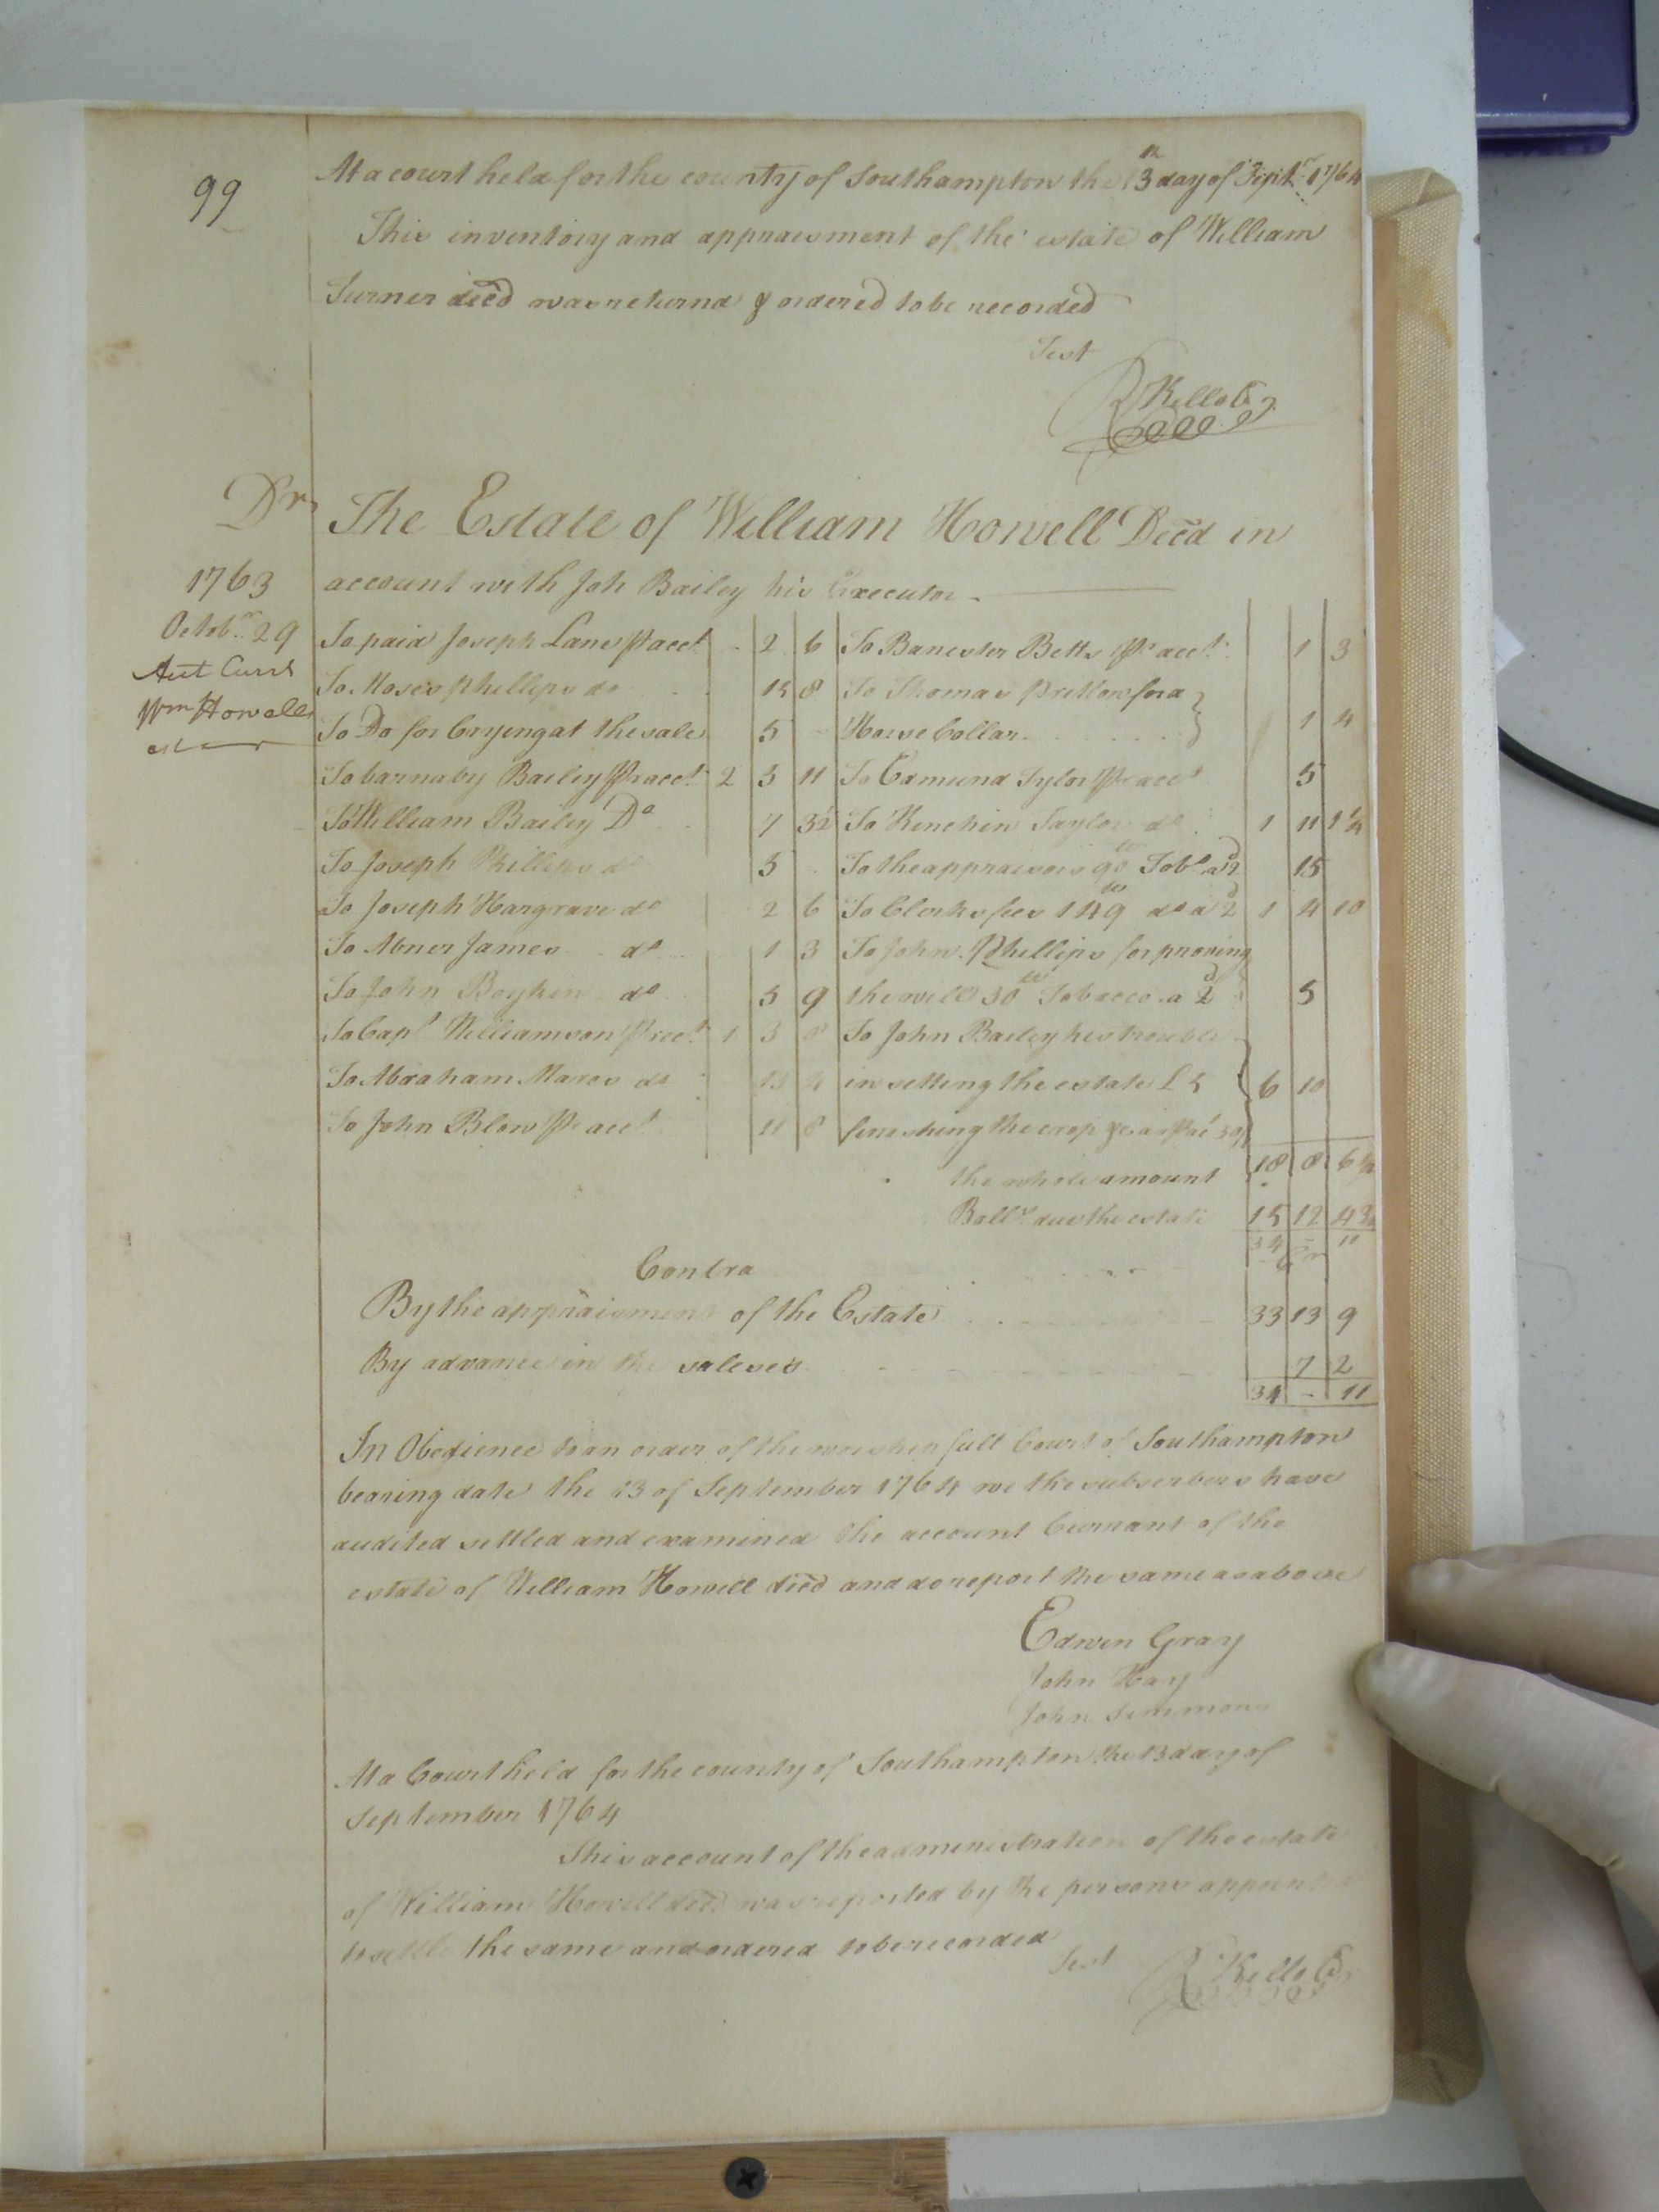 99
At a court held for the county of Southampton the 13 day of Sept.r 1764
This inventory and appraisment of the estate of William
Turner decd was returnd & ordered to be recorded
Test
R Kello Ck
Dr
The Estate of William Howell Decd in
1763
account with Joh Bailey his Executor
Octob.r 29
Act Curt
Wm Howells
est
To paid Joseph Lane P acct - 2 6 To Banester Betts Pr acct 1 3
To Moses phillips do 15 8 To Thomas Pretlow for a
To Do for Cryeng at the sale 5 - Horse Collar 1 4
To barnaby Bailey Pr acct 2 3 11 To Edmund Tylor Pr acct 5
To William Bailey Do 7 3½ To Kinchin Taylor do 1 11 1¼
To Joseph Phillips do 5 To the appraisers 90 Tobo a 2d 15
To Joseph Hargrave do 2 6 To Clerks fees 149 do a 2d 1 4 10
To Abner James do 1 3 To John Phillips for proving
To John Boykin do 5 9 the will 30 Tobacco a 2d 5
To Capt Williamson P acct 1 3 8 To John Bailey his trouble
To Abraham Mares do 13 4 in setting the estate £ 5 6 10
To John Blow Pr acct 11 8 finishing the crop &c as P
the whole amount 18 8 6¼
Ballce due the estate 15 12 4¾
34 - 11
Contra Cr
By the appraisment of the Estate 33 13 9
By advance in the saleses 7 2
34 - 11
In Obedience to an order of the worshipfull Court of Southampton
bearing date the 13 of September 1764 we the subscribers have
audited settled and examined the account Currant of the
estate of William Howell decd and do report the same as above
Edwin Gray
John Hay
John Simmons
At a Court held for the county of Southampton the 13 day of
September 1764
This account of the administration of the estate
of William Howell decd was reported by the persons appointed
to settle the same and ordered to be recorded
Test
R Kello Ck